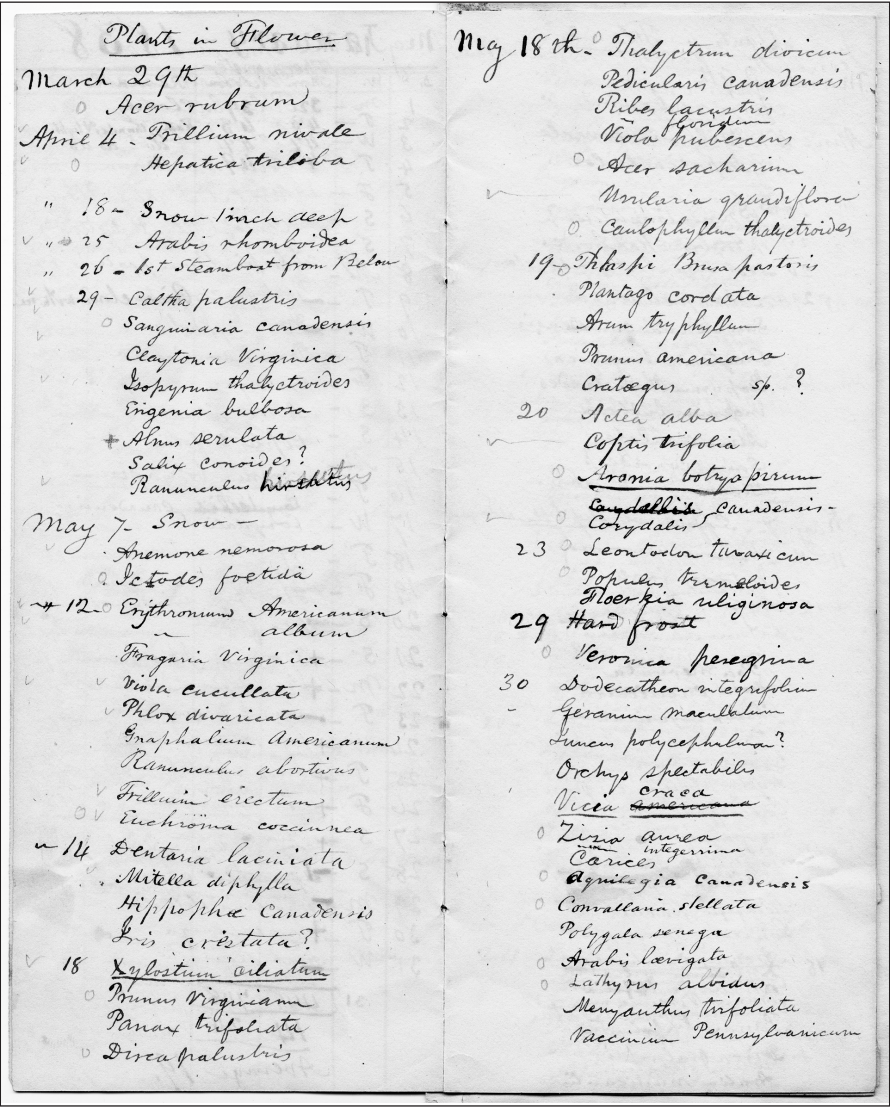 Plants in Flower
March 29th
Acer rubrum
April 4 - Trillium nivale
Hepatica triloba
" 18 - Snow 1 inch deep
" 25 Arabis rhomboidea
" 26 - 1st Steamboat from Below
29 - Caltha palustris
Sanguinaria canadensis
Claytonia Virginica
Isopyrum thalyctroides
Erigenia bulbosa
+ Alnus serulata
Salix conoides?
Ranunculus
May 7 - Snow -
Anemone nemorosa
Ictodes foetida
" 12 - Erythronium Americanum
" album
Fragaria Virginica
Viola cucullata
Phlox divaricata
Gnaphalium Americanum
Ranunculus abortivus
Trillium erectum
Euchroma coccinnea
" 14 Dentaria laciniata
Mitella diphylla
Hippophae Canadensis
Iris cristata?
18 Xylostium ciliatum
Prunus Virginiana
Panax trifoliata
Dirca palustris
May 18th - Thalyctrum dioicum
Pedicularis canadensis
Ribes lacustris
" floridum
Viola pubescens
Acer sacharium
Uvularia grandiflora
Caulophyllum thalyctroides
19 - Thlaspi Bursa pastoris
Plantago cordata
Arum tryphyllum
Prunus americana
Cratægus sp. ?
20 Actea alba
Coptis trifolia
Aronia botryapirum
Corydallis canadensis -
Corydalis
23 Leontodon taraxicum
Populus tremeloides
Floerkia uliginosa
29 Hard frost
Veronica peregrina
30 Dodecatheon integrifolium
Geranium maculatum
Juncus polycephalum?
Orchys spectabilis
craca
Vicia americana
Zizia aurea
" integerrima
Carices
Aquilegia canadensis
Convallaria stellata
Polygala senega
Arabis lævigata
Lathyrus albidus
Menyanthus trifoliata
Vaccinium Pennsylvanicum